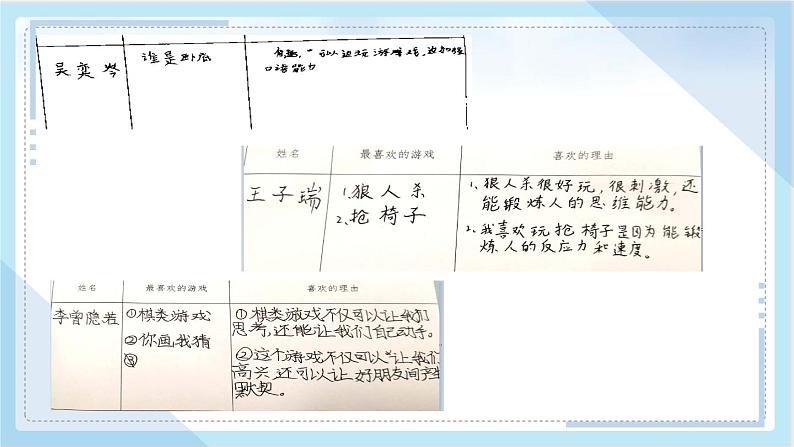 吴奕岑
谁是卧底
有趣,可以边玩游戏,边加强
口语能力
姓名 最喜欢的游戏 喜欢的理由
王子瑞
1.狼人杀
2.抢椅子
1.狼人杀很好玩,很刺激,还
能锻炼人的思维能力。
2.我喜欢玩抢椅子是因为能锻
炼人的反应力和速度。
姓名 最喜欢的游戏 喜欢的理由
李曾隐若
①棋类游戏
②你画我猜
③
①棋类游戏不仅可以让我们
思考,还能让我们自己动手。
②这个游戏不仅可以让我们
高兴,还可以让好朋友间产生
默契。